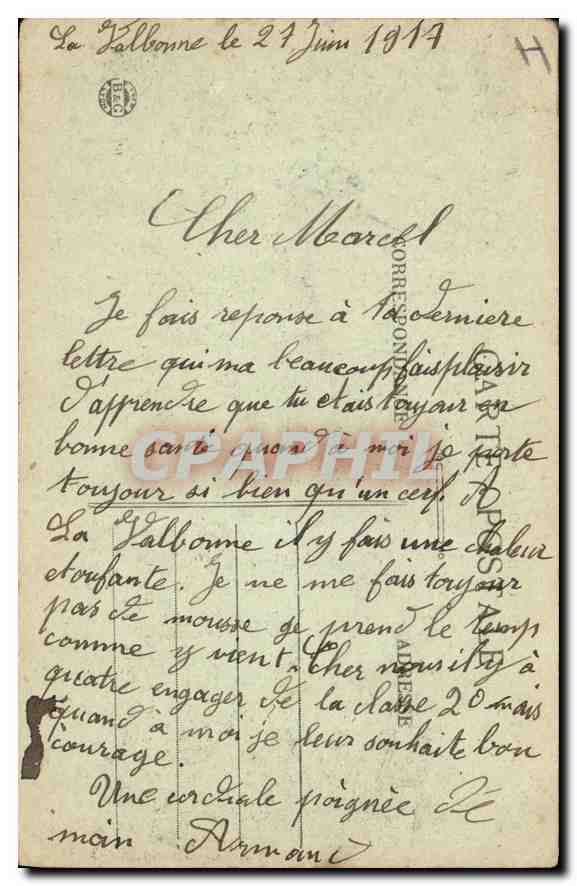 La Valbonne le 27 Juin 1917
H
B&C
Cher Marcel
CORRESPONDANCE
CARTE POSTALE
ADRESSE
Je fais reponse à ta derniere
lettre qui ma beaucoup fais plaisir
d'apprendre que tu etais toujour en
bonne santé quand à moi je porte
toujour si bien qu'un cerf. A
La Valbonne il y fais une chaleur
etoufante. Je ne me fais toujour
pas de mousse ge prend le temp
comme y vient. Cher nous il y à
quatre engager de la classe 20 mais
quand à moi je leur souhaite bon
courage.
Une cordiale poignée de
main Armand
CPAPHIL